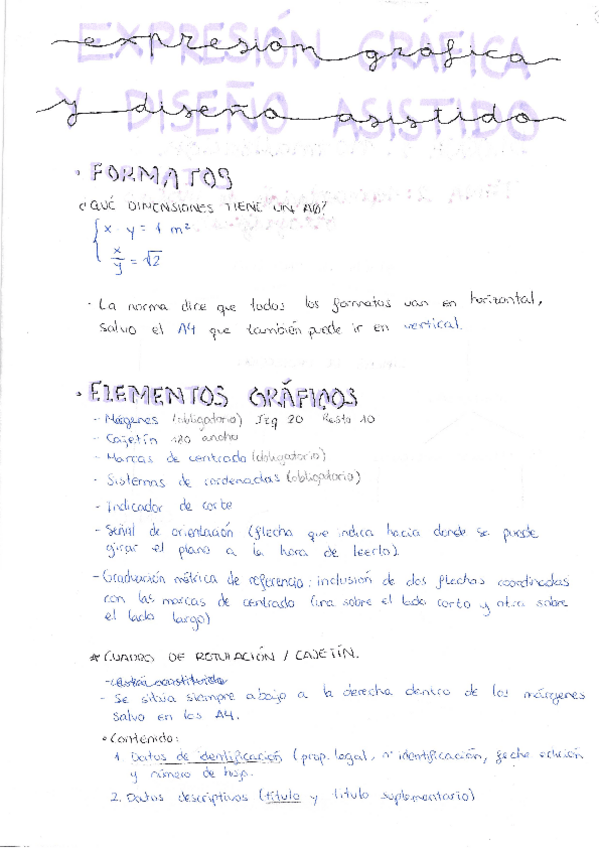 expresión gráfica
y diseño asistido
· FORMATOS
¿QUÉ DIMENSIONES TIENE UN A0?
x · y = 1 m²
x/y = √2
- La norma dice que todos los formatos van en horizontal,
salvo el A4 que también puede ir en vertical.
· ELEMENTOS GRÁFICOS
- Márgenes (obligatorio) Izq 20 Resto 10
- Cajetín 180 ancho
- Marcas de centrado (obligatorio)
- Sistemas de coordenadas (obligatorio)
- Indicador de corte
- Señal de orientación (flecha que indica hacia donde se puede
girar el plano a la hora de leerlo)
- Graduación métrica de referencia: inclusión de dos flechas coordinadas
con las marcas de centrado (una sobre el lado corto y otra sobre
el lado largo)
* CUADRO DE ROTULACIÓN / CAJETÍN.
- Se sitúa siempre abajo a la derecha dentro de los márgenes
salvo en los A4.
• Contenido:
1. Datos de identificación (prop. legal, nº identificación, fecha edición
y número de hoja.
2. Datos descriptivos (título y título suplementario)